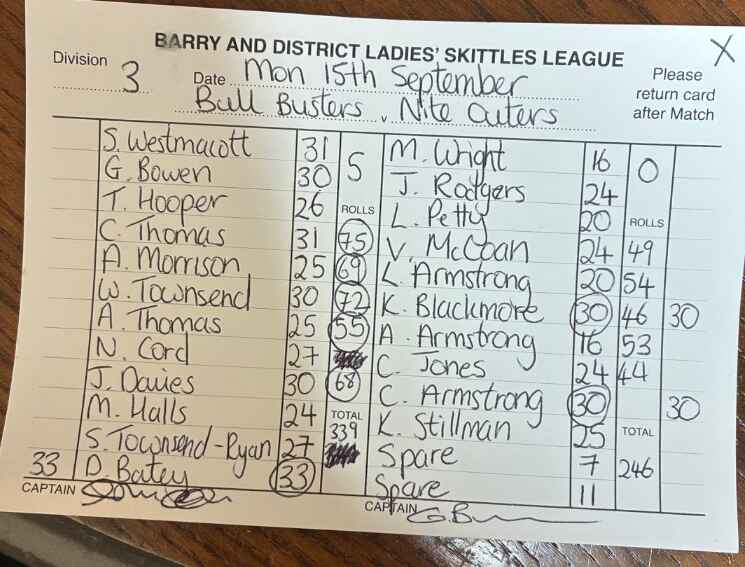 BARRY AND DISTRICT LADIES' SKITTLES LEAGUE X
Division 3 Date Mon 15th September Please
return card
after Match
Bull Busters v Nite Outers
S. Westmacott 31 5 M. Wright 16 0
G. Bowen 30 J. Rodgers 24
T. Hooper 26 ROLLS L. Petty 20 ROLLS
C. Thomas 31 75 V. McCoan 24 49
A. Morrison 25 69 L. Armstrong 20 54
W. Townsend 30 72 K. Blackmore 30 46 30
A. Thomas 25 55 A. Armstrong 16 53
N. Cord 27 C. Jones 24 44
J. Davies 30 68 C. Armstrong 30 30
M. Halls 24 TOTAL K. Stillman 25 TOTAL
S. Townsend-Ryan 27 339 Spare 7 246
33 D. Batey 33 Spare 11
CAPTAIN CAPTAIN